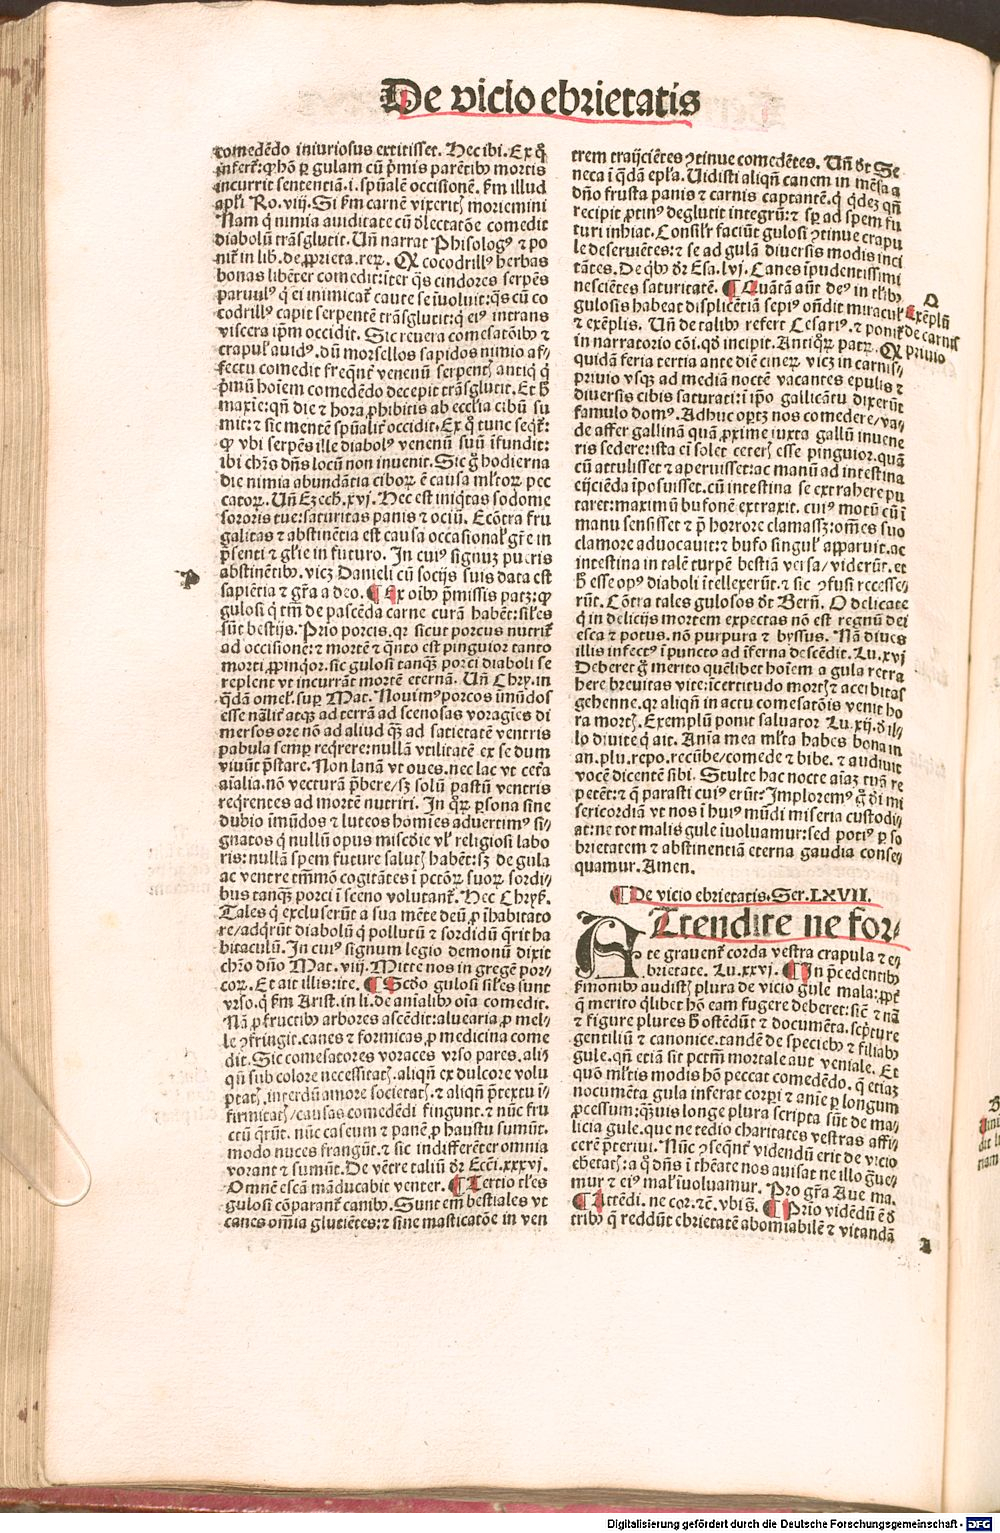 De vicio ebrietatis
comedēdo iniuriosus extitisset. Hec ibi. Ex quo
infert᷑: ꝙ hō ꝑ gulam cū p̄mis parētibꝰ mortis
incurrit sententiā .i. spūalē occisionē. ẜm illud
apłi Ro. viij. Si ẜm carnē vixeritꝭ moriemini
Nam q̇ nimia auiditate cū dlectatōe comedit
diabolū trāsglutit. Uñ narrat Phisologꝰ ⁊ po
nit᷑ in lib. de ꝓprieta. reꝝ. Qꝫ cocodrillꝰ herbas
bonas libēter comedit: iter qͣs cindores serpēs
paruulꝰ q̇ ei inimicat᷑ caute se īuoluit: qͣs cū co
codrillꝰ capit serpentē trāsglutit: q̇ eiꝰ intrans
viscera ip̄m occidit. Sic reuera comesatōibꝰ ⁊
crapulꝭ auidꝰ. dū morsellos sapidos nimio af⸗
fectu comedit freqñt᷑ venenū serpentꝭ antiq̇ q̇
p̄mū hoīem comedēdo decepit trāsglutit. Et ħ
maxīe: qñ die ⁊ hora ꝓhibitis ab ecclīa cibū su
mit: ⁊ sic mentē spūalit᷑ occidit. Ex q̊ tunc seqt᷑:
ꝙ vbi serpēs ille diabolꝰ venenū suū īfundit:
ibi chr̄s dn̄s locū non inuenit. Sic gͦ hodierna
die nimia abundātia ciboꝝ ē causa mltoꝝ pec
catoꝝ. Uñ Ezech. xvj. Hec est iniq̇tas sodome
sororis tue: saturitas panis ⁊ ociū. Ecōtra fru
galitas ⁊ abstinētia est causa occasionalꝭ gr̄e in
p̄senti ⁊ gl̄ie in futuro. In cuiꝰ signuꝫ pueris
abstinētibꝰ. vicꝫ Danieli cū socijs suis data est
P
sapiētia ⁊ gr̄a a deo. ¶ Ex oībꝰ p̄missis patꝫ: ꝙ
gulosi q̇ tm̄ de pascēda carne curā habēt: sil̄es
sūt bestijs. Prīo porcis. qꝛ sicut porcus nutrit᷑
ad occisionē: ⁊ mortē ⁊ qͣnto est pinguior tanto
morti ꝓpinq̇or. sic gulosi tanqͣꝫ porci diaboli se
replent vt incurrāt mortē eternā. Uñ Chry. in
qͣdā omel. suꝑ Mat. Nouimꝰ porcos īmūdos
esse nāl̄it᷑ atqꝫ ad terrā ad scenosas voragīes di
mersos ore nō ad aliud qͣꝫ ad satietatē ventris
pabula semꝑ reqͥrere: nullā vtilitatē ex se dum
viuūt p̄stare. Non lanā vt oues. nec lac vt cet᷑a
aīalia. nō vecturā p̄bere/ sꝫ solū pastū ventris
reqͥrentes ad mortē nutriri. In qͦꝝ ꝑsona sine
dubio īmūdos ⁊ luteos homīes aduertimꝰ si⸗
gnatos q̇ nullū opus mīscdie vl̄ religiosi labo
ris: nullā spem future salutꝭ habēt: sꝫ de gula
ac ventre tm̄mō cogitātes ī pctōꝝ suoꝝ sordi⸗
bus tanqͣꝫ porci ī sceno volutant᷑. Hec Chryß.
Tales q̇ excluserūt a sua mēte deū ꝓ īhabitato
re/ adqͥrūt diabolū q̇ pollutū ⁊ sordidū qͥrit ha
bitaculū. In cuiꝰ signum legio demonū dixit
chr̄o dn̄o Mat. viij. Mitte nos in gregē por⸗
coꝝ. Et ait illis: ite. ¶ Scdo gulosi sil̄es sunt
vrso. q̇ ẜm Arist. in li. de aīalibꝰ oīa comedit.
Nā ꝓ fructibꝰ arbores ascēdit: aluearia ꝓ mel⸗
le ꝯfringit. canes ⁊ formicas ꝓ medicina come
dit. Sic comesatores voraces vrso pares. alij
qñ sub colore necessitatꝭ. aliqñ ex dulcore volu
ptatꝭ. interdū amore societatꝭ. ⁊ aliqñ p̄textu ī⸗
firmitatꝭ/ causas comedēdi fingunt. ⁊ nūc fru
ctū qͥrūt. nūc caseum ⁊ panē ꝓ haustu sumūt.
modo nuces frangūt. ⁊ sic indifferēter omnia
vorant ⁊ sumūt. De vētre taliū dꝛ Ecci. xxxvj.
Omnē escā māducabit venter. ¶ Tertio tl̄es
gulosi cōparant᷑ canibꝰ. Sunt em̄ bestiales vt
canes om̄ia glutiētes: ⁊ sine masticatōe in ven
trem traijciētes ꝯtinue comedētes. Uñ dt Se
neca ī qͣdā epl̄a. Uidisti aliqñ canem in mēsa a
dn̄o frusta panis ⁊ carnis captantē. q̇ q̇dqͥd qñ
recipit ꝓtinꝰ deglutit integrū: ⁊ sꝑ ad spem fu
turi inhiat. Consil̄r faciūt gulosi ꝯtinue crapu
le deseruiētes: ⁊ se ad gulā diuersis modis inci
tātes. De qͥbꝰ dꝛ Esa. lvj. Canes īpudentissimi
nescientes saturitatē. ¶ Quātā aūt deꝰ in tl̄ibꝰ
gulosis habeat displicētiā sepiꝰ oñdit miraculꝭ
⁊ exēplis. Uñ de talibꝰ refert Cesariꝰ. ⁊ ponit᷑
O
Exēplū
de carnis
priuio
in narratorio cōi. qd̄ incipit. Antiqͦꝝ patꝝ. Qꝫ
quidā feria tertia ante diē cineꝝ vicꝫ in carnis⸗/
priuio vsqꝫ ad mediā noctē vacantes epulis ⁊
diuersis cibis saturati: ī ip̄o gallicātu dixerūt
famulo domꝰ. Adhuc oꝑtꝫ nos comedere/ va⸗
de affer gallinā quā ꝓxime iuxta gallū inuene
ris sedere: ista ei solet ceterꝭ esse pinguior. quā
cū attulisset ⁊ aperuisset: ac manū ad intestina
eijciēda īposuisset. cū intestina se extrahere pu
taret: maximū bufonē extraxit. cuiꝰ motū cū ī
manu sensisset ⁊ p̄ horrore clamasꝫ: om̄es suo
clamore aduocauit: ⁊ bufo singulꝭ apparuit. ac
intestina in talē turpē bestiā versa/ viderūt. et
ħ esse opꝰ diaboli ītellexerūt. ⁊ sic ꝯfusi recesse⸗
rūt. Cōtra tales gulosos dt Berñ. O delicate
q̇ in delicijs mortem expectas nō est regnū dei
esca ⁊ potus. nō purpura ⁊ byssus. Nā diues
illis infectꝰ ī puncto ad īferna descēdit. Lu. xvj
Deberet gͦ merito quēlibet hoīem a gula retra
here breuitas vite: īcertitudo mortꝭ ⁊ acerbitas
gehenne. qꝛ aliqñ in actu comesatōis venit ho
ra mortꝭ. Exemplū ponit saluator Lu. xij. d̄ il⸗
lo diuite q̇ ait. Anīa mea ml̄ta habes bona in
an. plu. repo. recūbe/ comede ⁊ bibe. ⁊ audiuit
vocē dicentē sibi. Stulte hac nocte aīaꝫ tuā re
petēt: ⁊ q̄ parasti cuiꝰ erūt? Imploremꝰ gͦ d̄i mi
sericordiā vt nos ī huiꝰ mūdi miseria custodi⸗
at: ne tot malis gule īuoluamur: sed potiꝰ ꝑ so
brietatem ⁊ abstinentiā eterna gaudia conse⸗
quamur. Amen.
¶ De vicio ebrietatis. Ser. LXVII.
Attendite ne for⸗
te grauent᷑ corda vestra crapula ⁊ e⸗
brietate. Lu. xxvj. ¶ In p̄cedentibꝰ
ẜmonibꝰ audistꝭ plura de vicio gule mala: ꝓpt᷑
q̄ merito qͥlibet hō eam fugere deberet: sicē ⁊ nā
⁊ figure plures ħ ostēdūt ⁊ documēta. sc̄pture
gentiliū ⁊ canonice. tandē de speciebꝰ ⁊ filiabꝰ
gule. qñ etiā sit pctm̄ mortale aut veniale. Et
quō ml̄tis modis hō peccat comedēdo. q̄ etiaꝫ
nocumēta gula inferat corꝑi ⁊ anīe ꝑ longum
ꝓcessum: qͣꝫuis longe plura scripta sūt de ma⸗
licia gule. que ne tedio charitates vestras affi⸗
cerē p̄teriui. Nūc ꝯseqn̄t᷑ videndū erit de vicio
ebetatꝭ: a q̊ dn̄s ī theāte nos auisat ne illo gͣue⸗
mur ⁊ eiꝰ malꝭ īuoluamur. Pro gr̄a Aue ma.
¶ Attēdi. ne cor. ⁊c̄. vbi s̄. ¶ Prīo vidēdū ē d̄
tribꝰ q̄ reddūt ebrietatē abomīabilē ⁊ vitandā
A
Digitalisierung gefördert durch die Deutsche Forschungsgemeinschaft - DFG